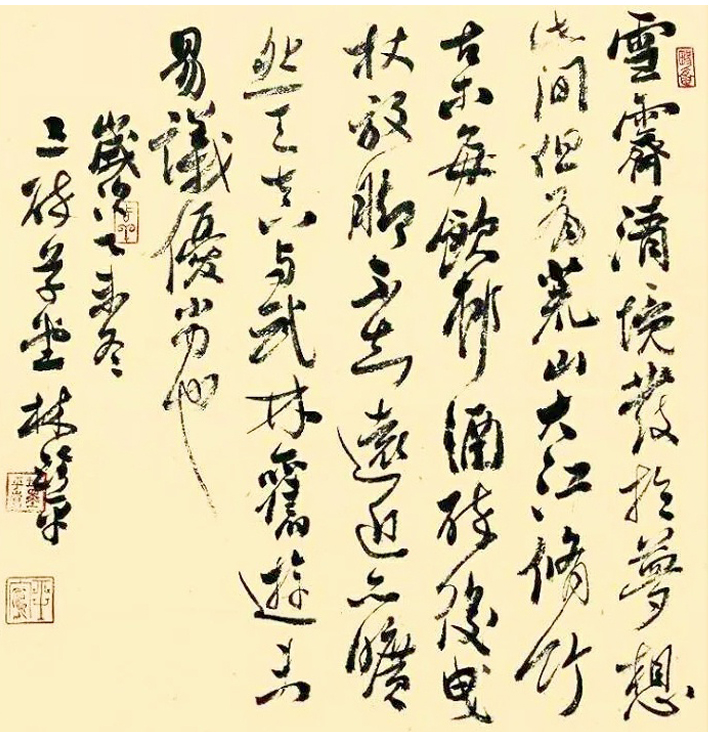 雪霽清境發於夢想
此間但有荒山大江脩竹
古木每飲村酒醉後曳
杖放脚不知遠近亦曠
然天真与武林舊遊未
易議優劣也
歲次丁未冬
草堂林平